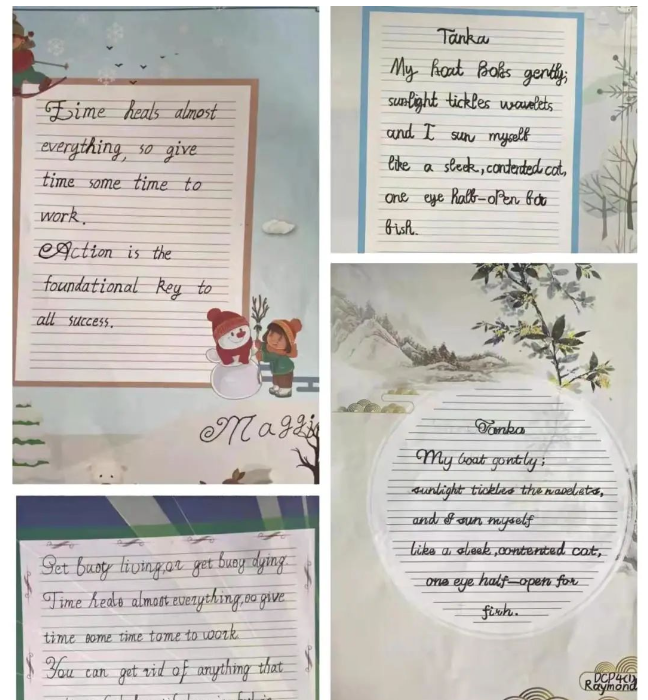 Time heals almost
everything, so give
time some time to
work.
Action is the
foundational key to
all success.
Maggi
Tanka
My boat bobs gently;
sunlight tickles wavelets
and I sun myself
like a sleek, contented cat,
one eye half-open for
fish.
Tanka
My boat gently;
sunlight tickles the wavelets,
and I sun myself
like a sleek, contented cat,
one eye half-open for
fish.
DCP4(1)
Raymond
Get busy living, or get busy dying.
Time heals almost everything, so give
time some time tome to work
You can get rid of anything that